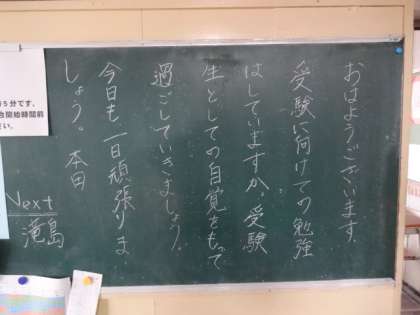 おはようございます.
受験に向けての勉強
はしていますか。受験
生としての自覚をもって
過ごしていきましょう。
今日も、一日頑張りま
しょう。 本田
Next
滝島
5分です。
開始時間前
さい。